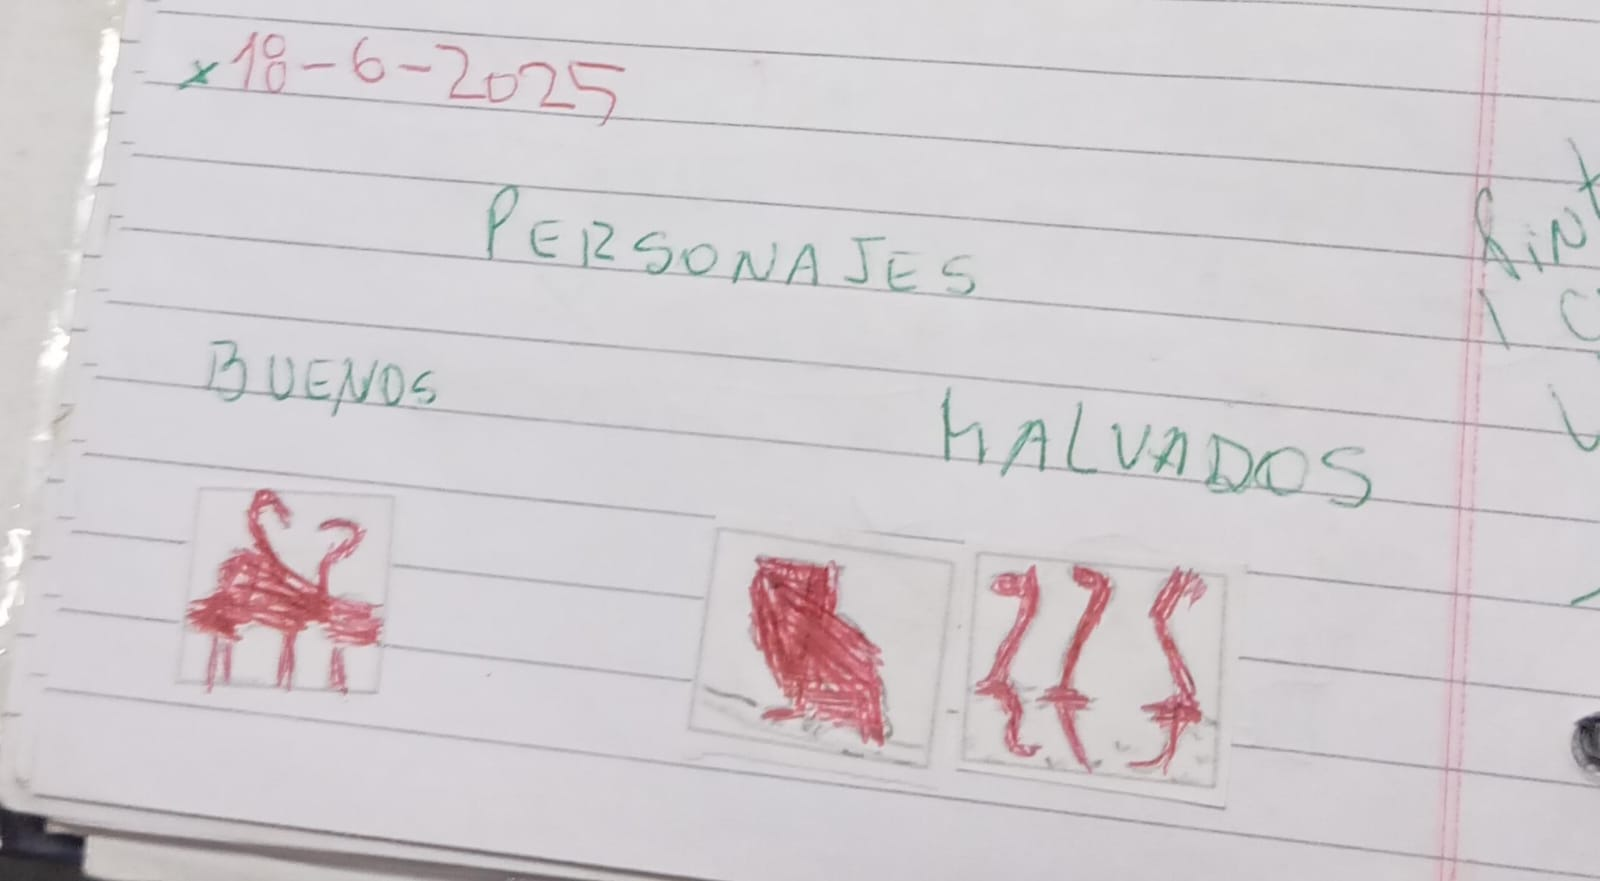 x 18-6-2025
PERSONAJES
BUENOS
MALVADOS